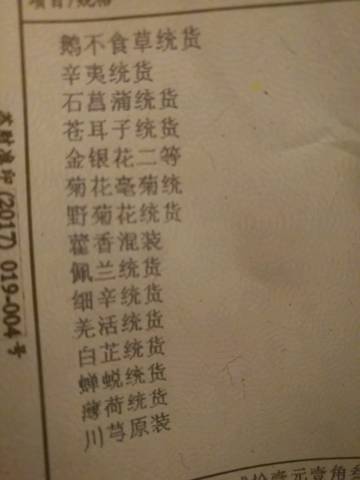 项目/规格
鹅不食草统货
辛夷统货
石菖蒲统货
苍耳子统货
金银花二等
菊花亳菊统
野菊花统货
藿香混装
佩兰统货
细辛统货
羌活统货
白芷统货
蝉蜕统货
薄荷统货
川芎原装
拾壹元壹角叁
(2017) 019-004号